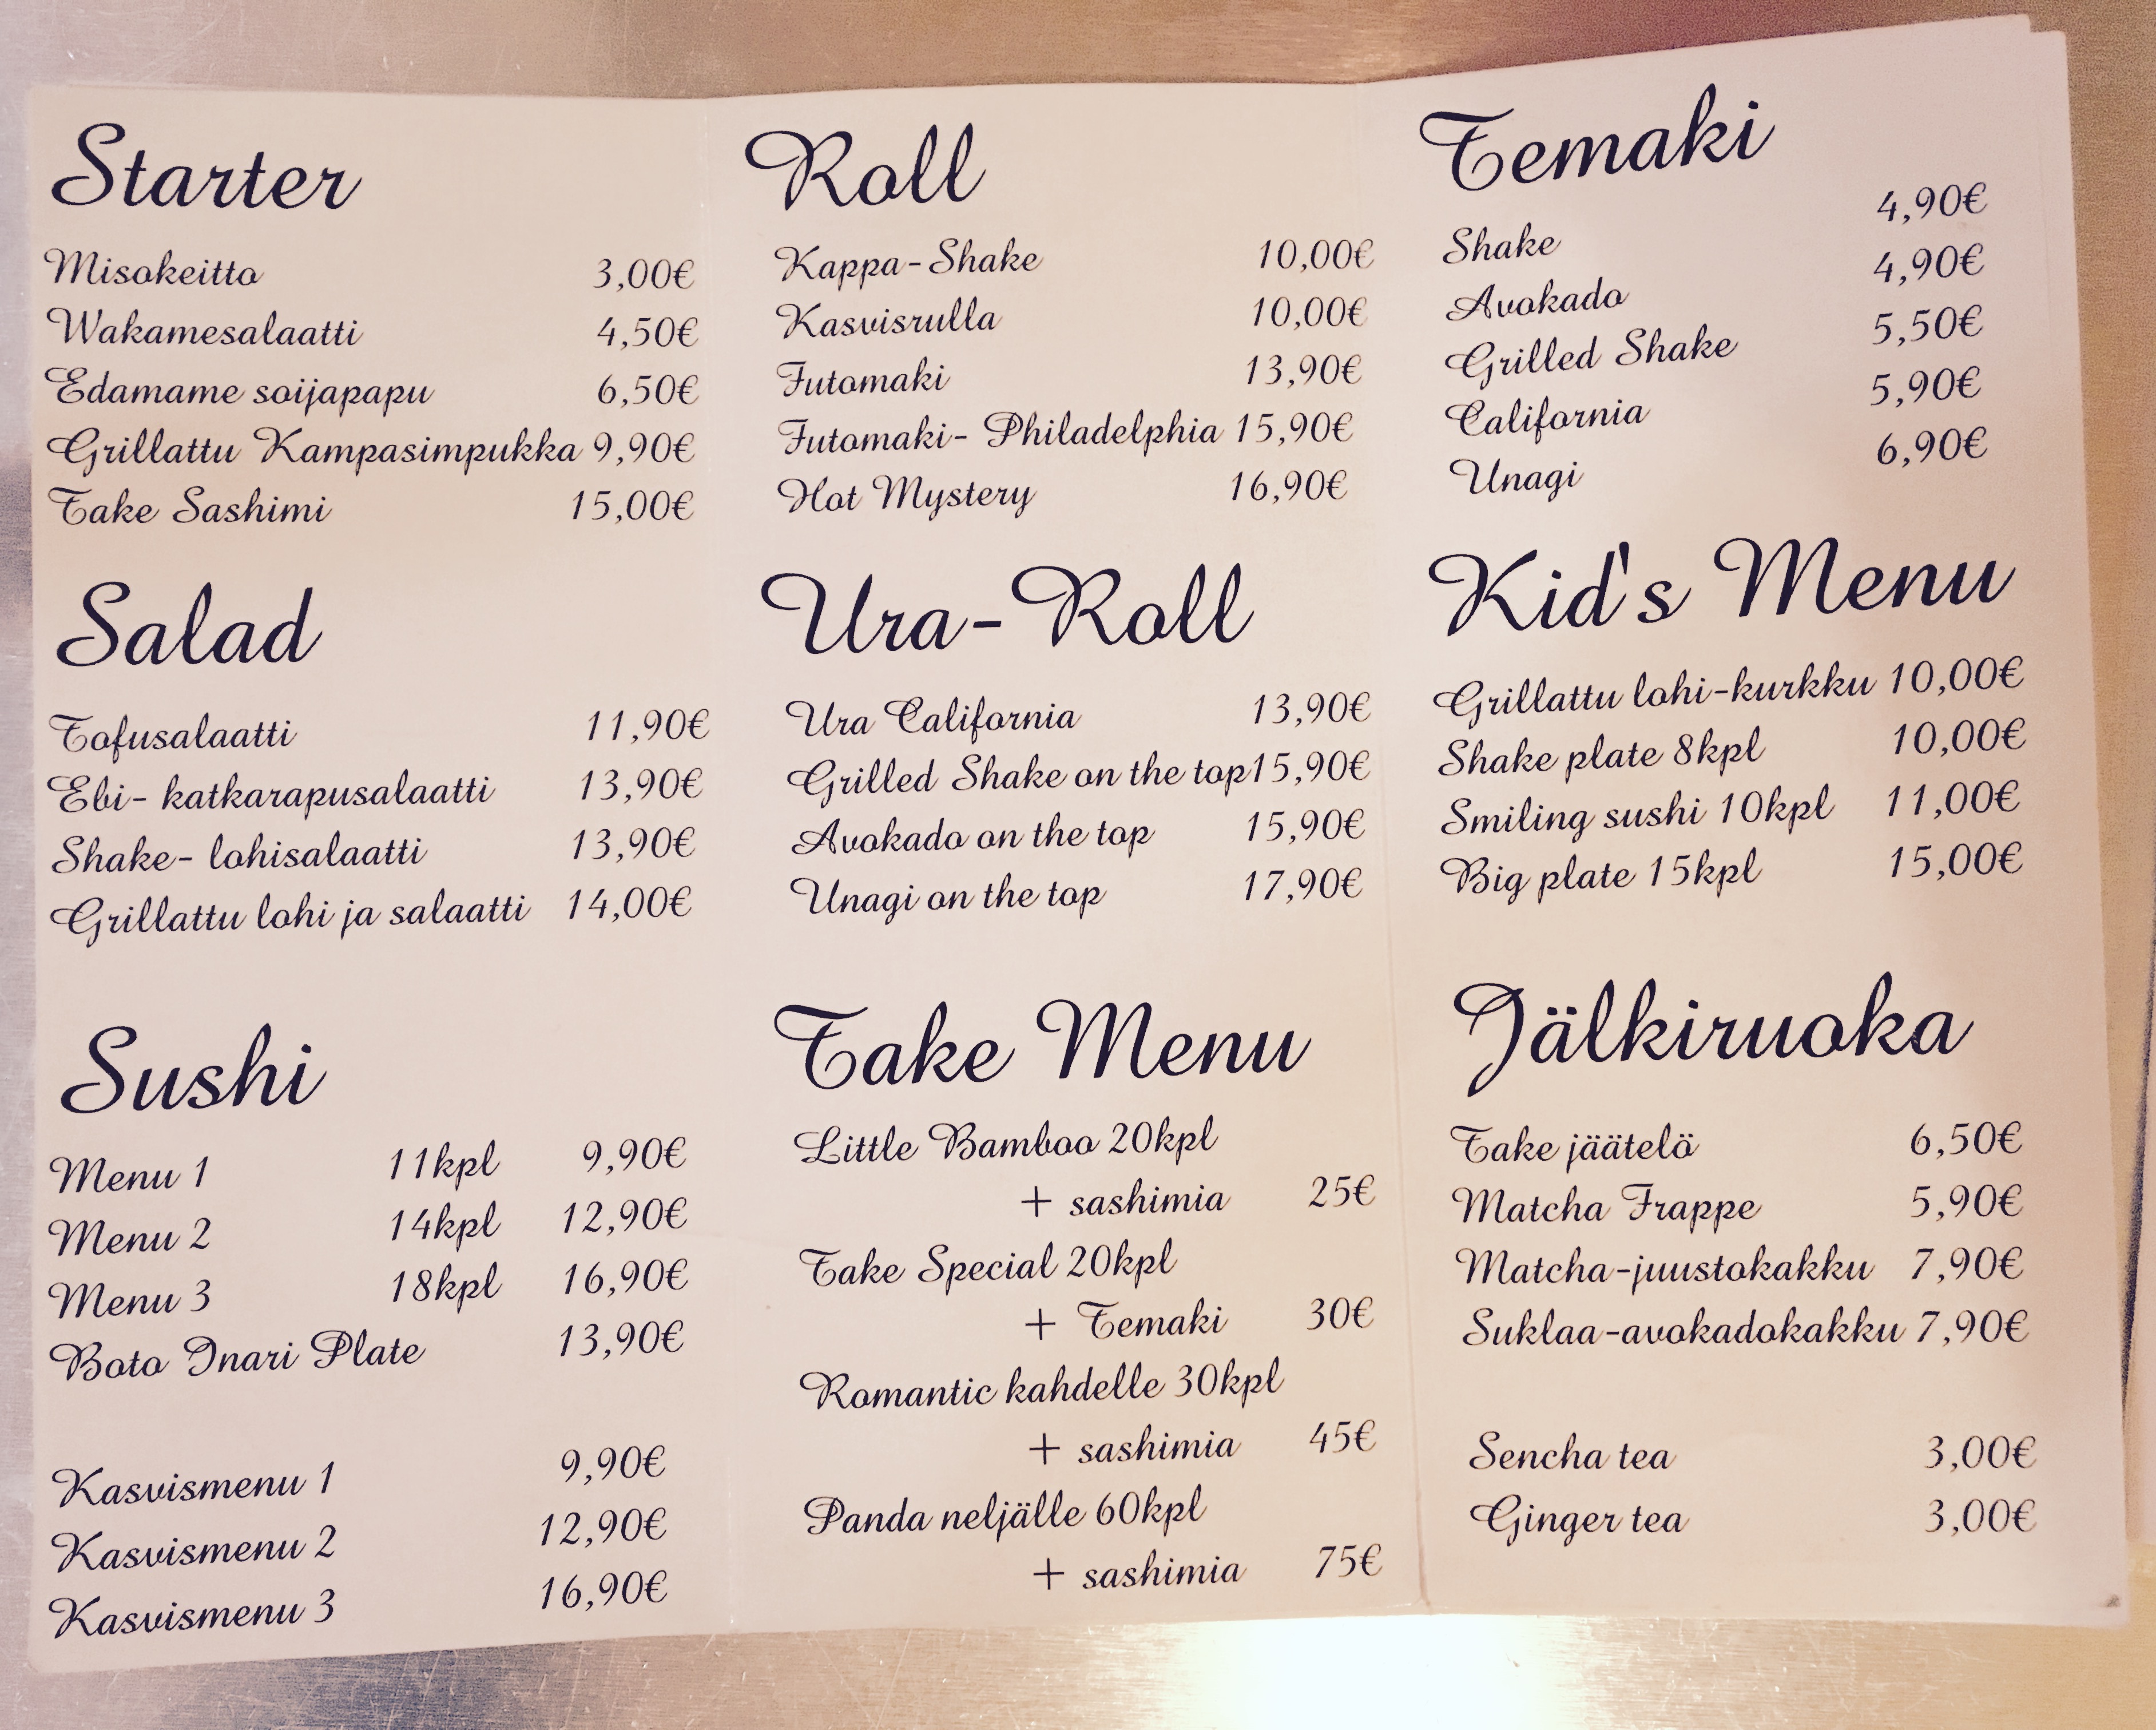 Starter
Misokeitto 3,00€
Wakamesalaatti 4,50€
Edamame soijapapu 6,50€
Grillattu Kampasimpukka 9,90€
Take Sashimi 15,00€
Salad
Tofusalaatti 11,90€
Ebi- katkarapusalaatti 13,90€
Shake- lohisalaatti 13,90€
Grillattu lohi ja salaatti 14,00€
Sushi
Menu 1 11kpl 9,90€
Menu 2 14kpl 12,90€
Menu 3 18kpl 16,90€
Boto Inari Plate 13,90€
Kasvismenu 1 9,90€
Kasvismenu 2 12,90€
Kasvismenu 3 16,90€
Roll
Kappa-Shake 10,00€
Kasvisrulla 10,00€
Futomaki 13,90€
Futomaki- Philadelphia 15,90€
Hot Mystery 16,90€
Ura-Roll
Ura California 13,90€
Grilled Shake on the top15,90€
Avokado on the top 15,90€
Unagi on the top 17,90€
Take Menu
Little Bamboo 20kpl
+ sashimia 25€
Take Special 20kpl
+ Temaki 30€
Romantic kahdelle 30kpl
+ sashimia 45€
Panda neljälle 60kpl
+ sashimia 75€
Temaki
Shake 4,90€
Avokado 4,90€
Grilled Shake 5,50€
California 5,90€
Unagi 6,90€
Kid's Menu
Grillattu lohi-kurkku 10,00€
Shake plate 8kpl 10,00€
Smiling sushi 10kpl 11,00€
Big plate 15kpl 15,00€
Jälkiruoka
Take jäätelö 6,50€
Matcha Frappe 5,90€
Matcha-juustokakku 7,90€
Suklaa-avokadokakku 7,90€
Sencha tea 3,00€
Ginger tea 3,00€